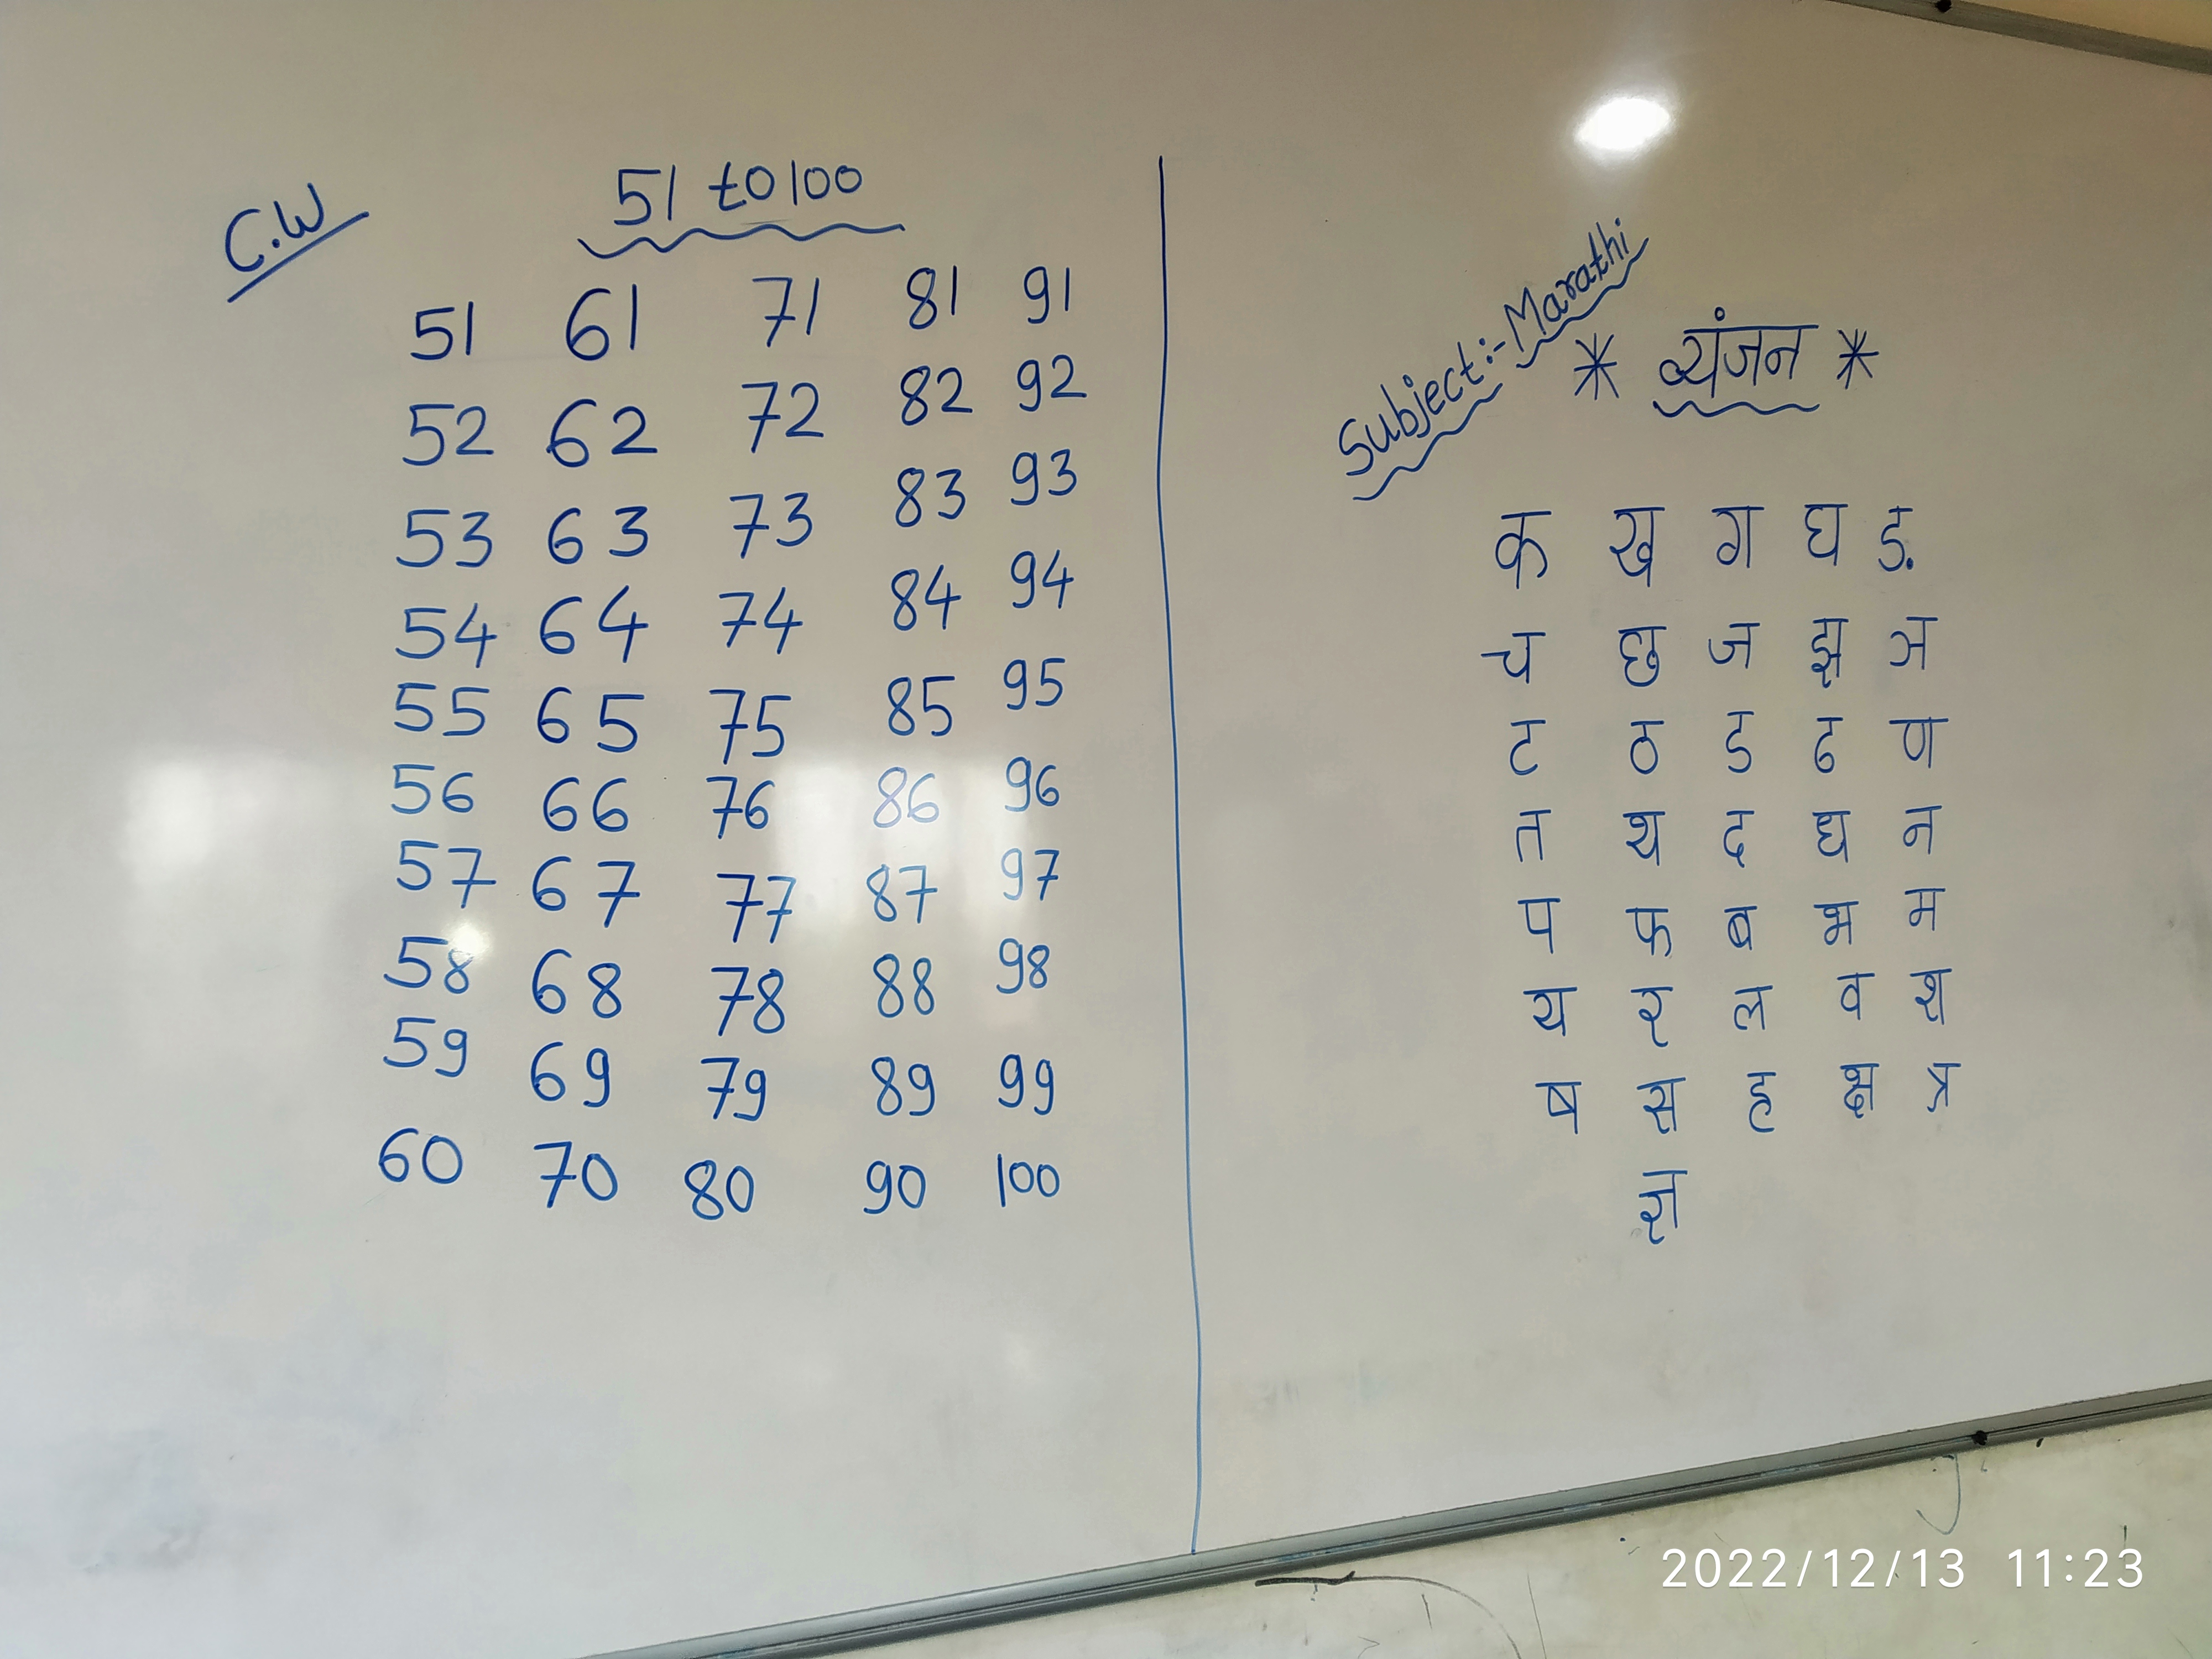 C.W
51 to 100
51 61 71 81 91
52 62 72 82 92
53 63 73 83 93
54 64 74 84 94
55 65 75 85 95
56 66 76 86 96
57 67 77 87 97
58 68 78 88 98
59 69 79 89 99
60 70 80 90 100
Subject:- Marathi
* व्यंजन *
क ख ग घ ङ
च छ ज झ ञ
ट ठ ड ढ ण
त थ द ध न
प फ ब भ म
य र ल व श
ष स ह क्ष त्र
ज्ञ
2022/12/13 11:23